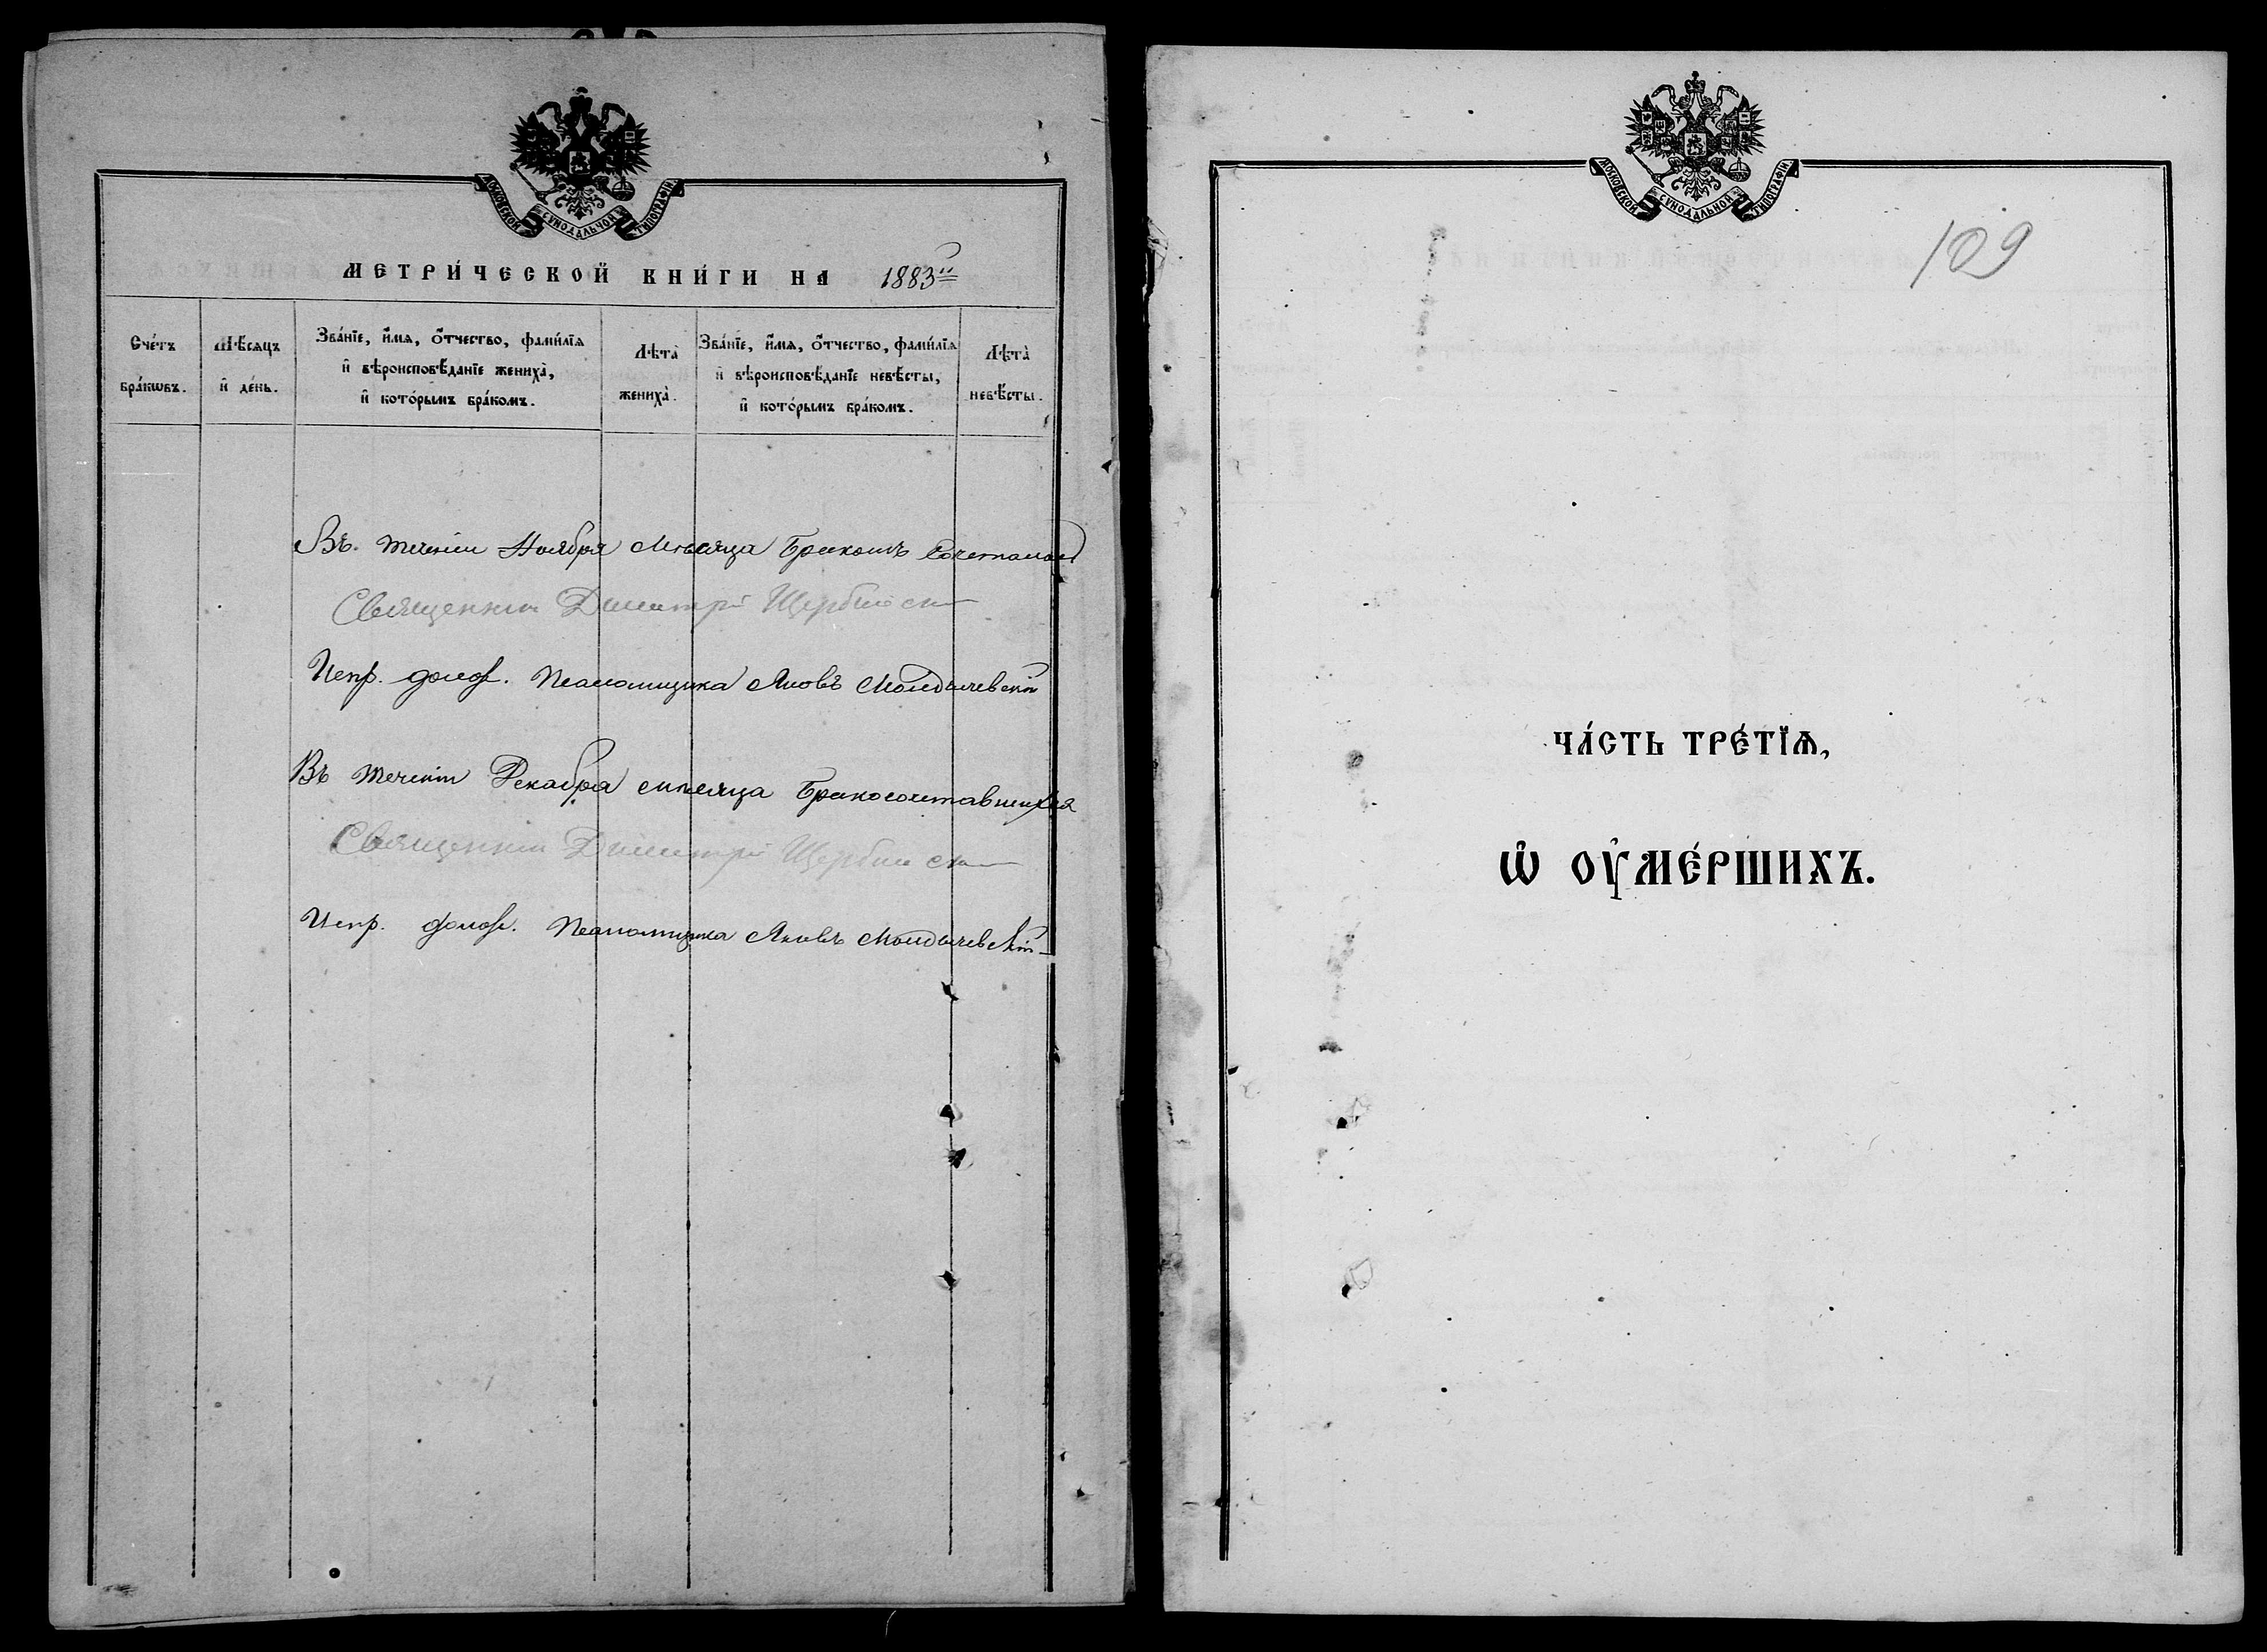 МОСКОВСКОЙ СУНОДАЛЬНОЙ ТИПОГРАФІИ
МЕТРИ́ЧЕСКОЙ КНИ́ГИ НА 1883
Сче́тъ бра́кωвъ.
Мѣ́сяцъ и де́нь.
Зва́нїе, и́мя, о́тчество, фами́лїя
и вѣроисповѣ́данїе жениха̀,
и кото́рымъ бра́комъ.
Лѣта̀ жениха̀.
Зва́нїе, и́мя, о́тчество, фами́лїя
и вѣроисповѣ́данїе невѣ́сты,
и кото́рымъ бра́комъ.
Лѣта̀ невѣ́сты.
Въ течении Ноября Мѣсяца Бракомъ
Священник Димитрій
Испр. долж. Псаломщика Яковъ
Въ течении Декабря мѣсяца Бракосочетавшихся
Священник Димитрій
Испр. долж. Псаломщика Яковъ
МОСКОВСКОЙ СУНОДАЛЬНОЙ ТИПОГРАФІИ
109
ЧА́СТЬ ТРЕ́ТЇѦ,
Ѡ ОУ҆МЕ́РШИХЪ.